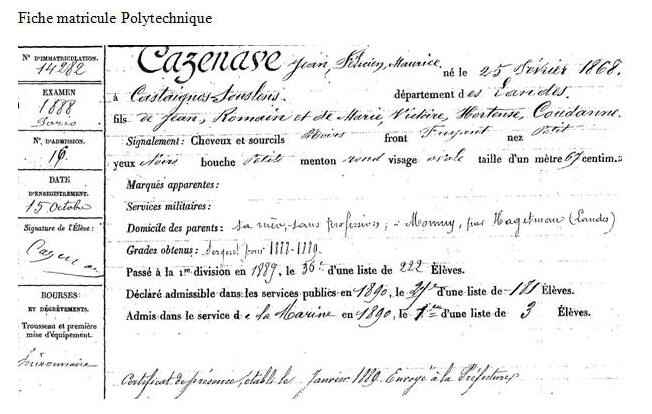 Fiche matricule Polytechnique
N° D'IMMATRICULATION
14282
EXAMEN
1888
Paris
N°. D'ADMISSION.
16.
DATE
D'ENREGISTREMENT.
15 Octobre
Signature de l'Élève:
Cazenave
BOURSES
ET DÉGRÈVEMENTS.
Trousseau et première
mise d'équipement.
CAZENAVE Jean, Félicien, Maurice. né le 25 Février 1868.
à Castaignos-Souslens. département des Landes.
fils de Jean, Romain et de Marie, Victoire, Hortense, Coudanne.
Signalement: Cheveux et sourcils Noirs front Fuyant nez Petit
yeux Noirs bouche Petite menton rond visage ovale taille d'un mètre 67 centim.
Marques apparentes:
Services militaires:
Domicile des parents: Sa mère, sans profession; à Momuy, par Hagetmau (Landes)
Grades obtenus: Sergent pour 1888-1889.
Passé à la 1re division en 1889, le 36e d'une liste de 222 Élèves.
Déclaré admissible dans les services publics en 1890, le d'une liste de 181 Élèves.
Admis dans le service de la Marine en 1890, le 1er d'une liste de 3 Élèves.
Certificat de présence, établi le Janvier 1889. Envoyé à la Préfecture